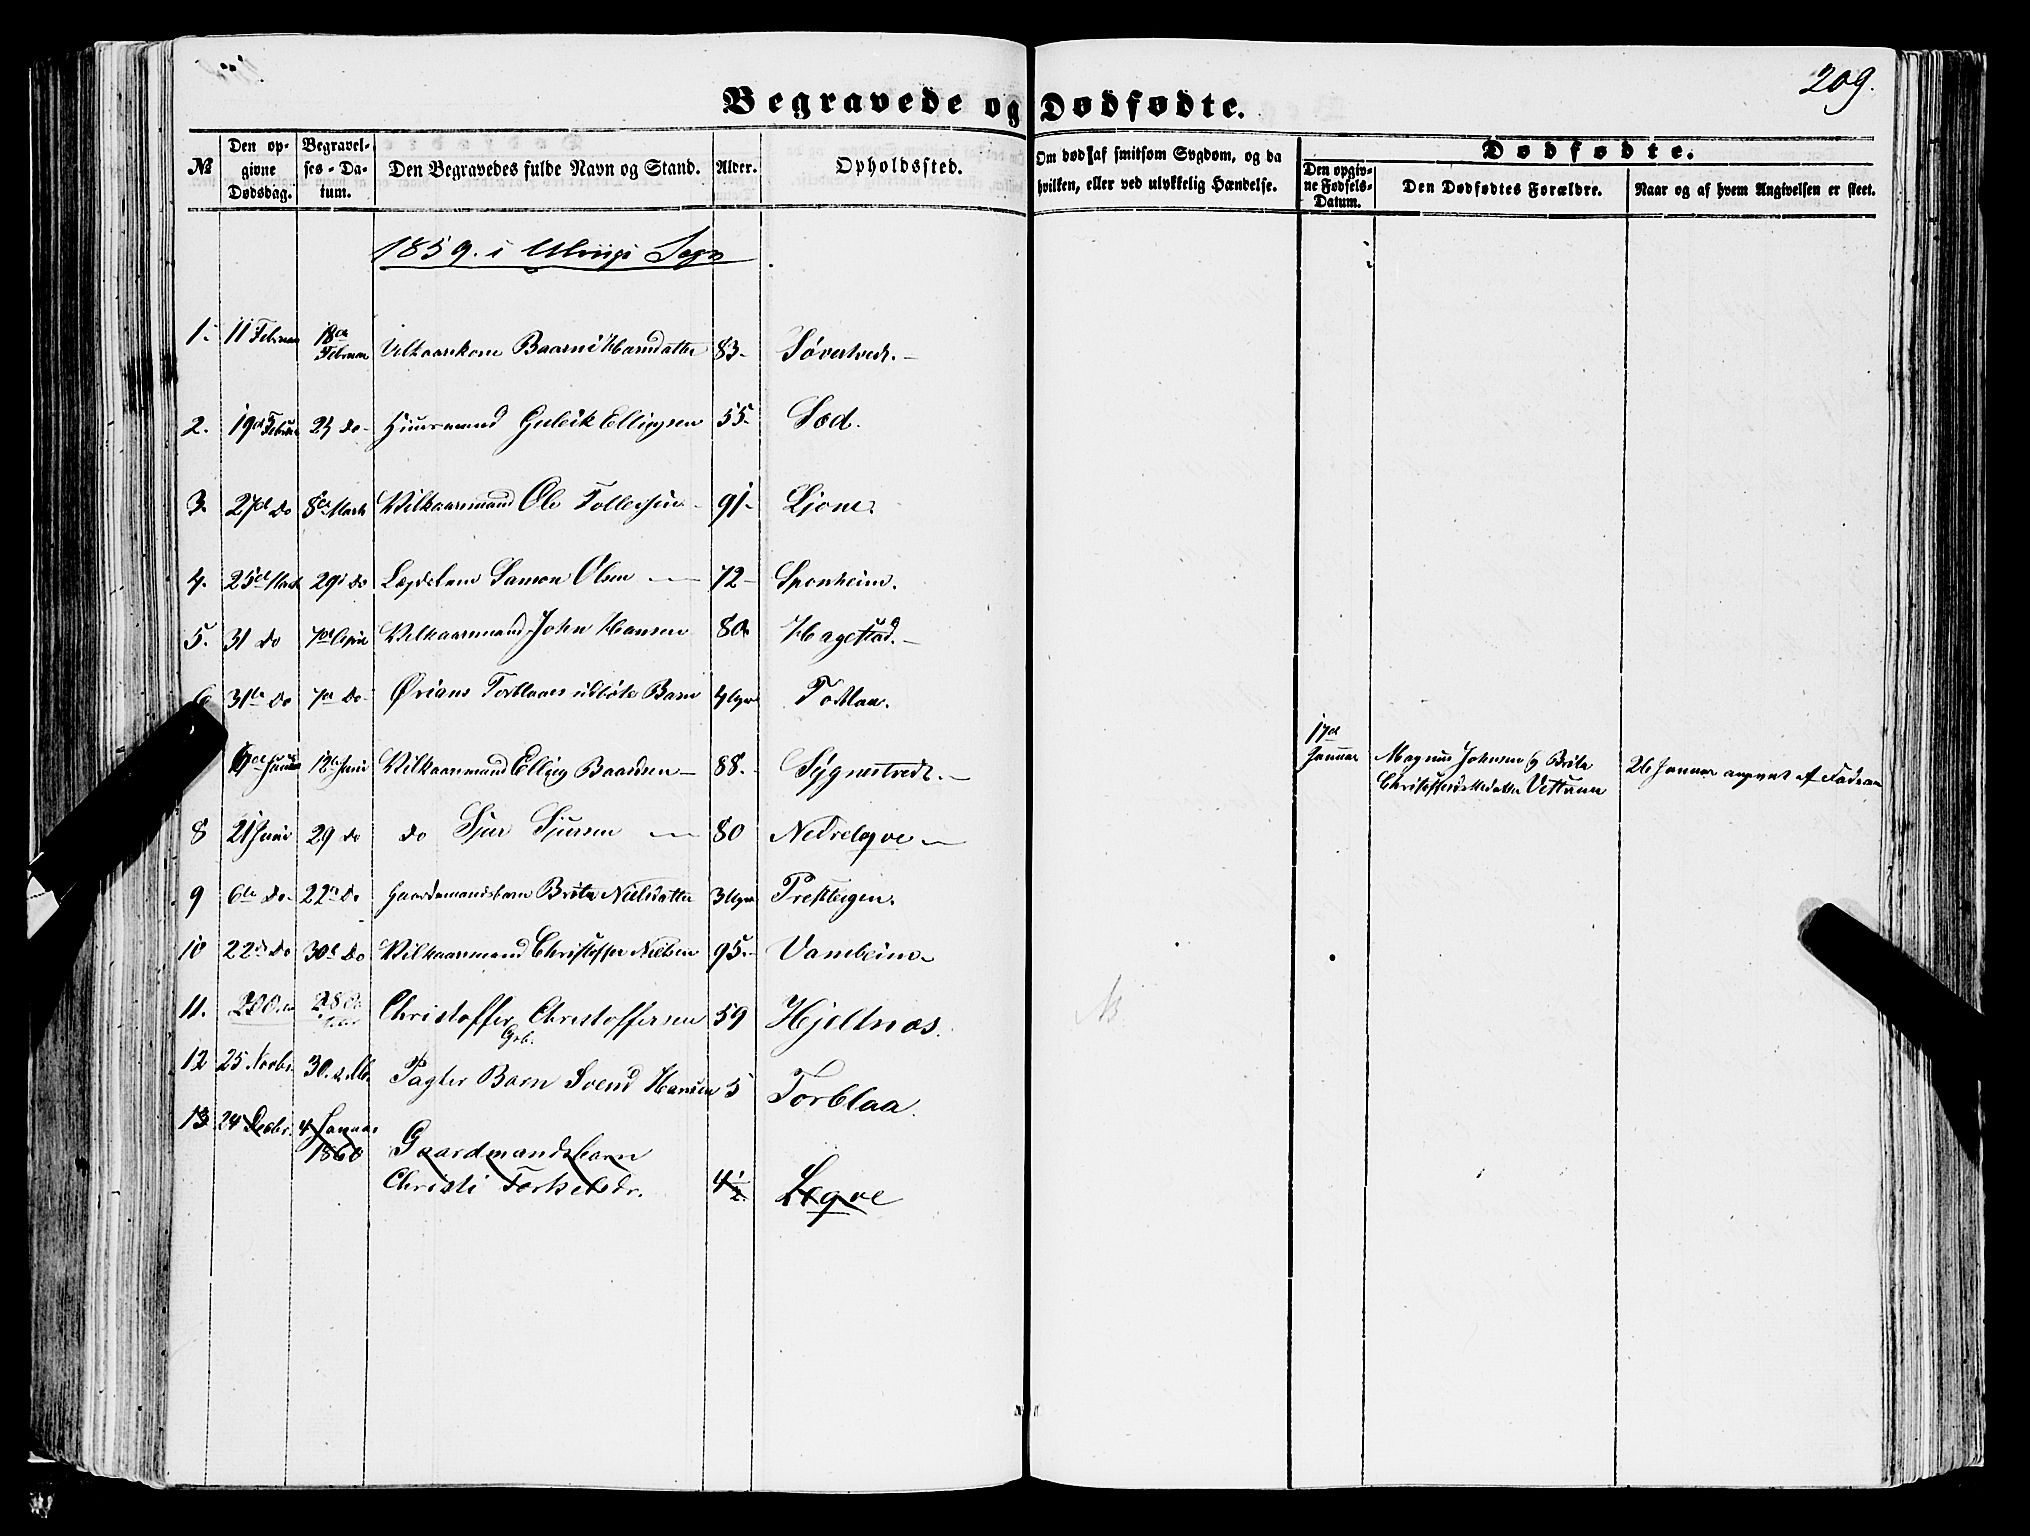 209.
Begravede og Dødfødte.
№
Den opgivne Dødsdag.
Begravelses-Datum.
Den Begravedes fulde Navn og Stand.
Alder.
Opholdssted.
Om død af smitsom Sygdom, og da hvilken, eller ved ulykkelig Hændelse.
Dødfødte.
Den opgivne Fødsels-Datum.
Den Dødfødtes Forældre.
Naar og af hvem Angivelsen er skeet.
1859. i Ulvigs Sogn
1. 11 Februar 18de Februar Vilkaarskone Hansdatter 83-
2. 19de Februar 23 do- Huusmand Guleik Ellingsen 55- Sæd.
3. 27de do 8de Marts Vilkaarsmand Ole Tollefsen - 91- Ljone.
4. 25de Marts 29de do Lægdslem Samson Olsen 72- Sponheim.
5. 31 do 7de April Vilkaarsmand John Hansen 80 Hagestad.-
6 31te do 7de do- Ørians Torblaaes udøbte Barn Torblaa.
12te Juni Vilkaarsmand Elling Baardsen- 88.- Sygnestvedt.-
17de Januar Magnus Johnsen og Brita
Christoffersdatter 26 Januar angivet af Faderen
8 21 Juni 29 do do Sjur Sjursen 80 Nedreleqve-
9 6te do- 22de do Gaardmandsbarn Brita Nielsdatter Prestteigen.
10 22de do 30te do Vilkaarsmand Christoffer Nielsen 95.- Vambeim-
11. Christoffer Christoffersen 59 Hjeltnæs.
Grb.
12 25 Novbr. 30. Pagter Barn Svend Hansen 5 Torblaa.
13 24 Decbr. 4 Januar
1860 Gaardmandsbarn
Christi Torkelsdr. 4½. Leqve